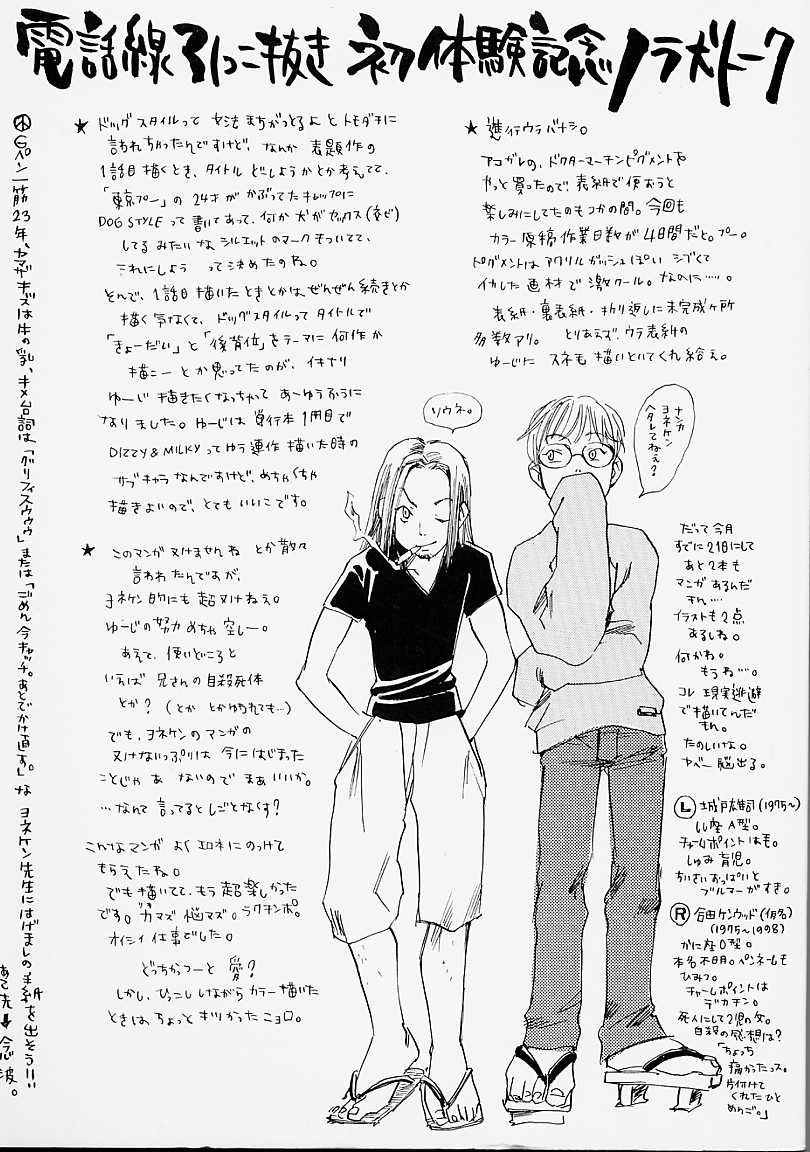 電話線引っこ抜き 初体験記念 ノラ犬トーク
★ ドッグスタイルって 文法まちがっとるよ とトモダチに
言われちゃったんですけど、なんか 表題作の
1話目描くとき、タイトル どしようかとか考えてて、
「東京プー」の 24才が かぶってた キャップに
DOG STYLE って 書いてあって、何か 犬がセックス
してる みたいな シルエットの マークも ついてて、
これにしよう って 決めたのね。
とんで、1話目 描いたときとかは、ぜんぜん 続きとか
描く 気なくて、ドッグスタイルって タイトルで
「きょーだい」と「後背位」をテーマに 何作か
描こー とか 思ってたのが、イキナリ
ゆーじ 描きたく なっちゃって あーゆうふうに
なりました。ゆーじは 単行本 1冊目で
DIZZY & MILKY って ゆう 連作 描いた時の
サブキャラ なんですけど、めちゃくちゃ
描きよいので、とても いいこです。
★ このマンガ ヌけませんね とか 散々
言われたんですが、
ヨネケン的にも 超ヌけねぇ。
ゆーじの努力 めちゃ 空しー。
あえて、使いどころと
いえば 兄さんの 自殺死体
とか? (とか とかゆわれても…)
でも、ヨネケンの マンガの
ヌけないっぷりは 今に はじまった
ことじゃ あ ないので まあいいか。
…なんて 言ってると しごとなくす?
こんなマンガ よく エロネに のっけて
もらえたね。
でも 描いてて、もう 超 楽しかった
です。ガマズ 悩マズ。ラクチンポ。
オイシイ 仕事でした。
どっちかつーと 愛?
しかし、ひっこし しながら カラー 描いた
ときは、ちょっと キツかった ニョロ。
★ 進行ウラバナシ。
アコガレの、ドクターマーチンピグメントを
やっと 買ったので、表紙で 使おうと
楽しみにしてたのもつかの間。今回も
カラー 原稿 作業日数が 4日間だと。プー。
ピグメントは アクリルガッシュぽい シブくて
イカした 画材で 激クール。なのに……。
表紙・裏表紙・折り返しに 未完成ヶ所
多数アリ。 とりあえず、ウラ表紙の
ゆーじに スネ毛 描いといてくれ 給え。
ソウネ。
ナンカ
ヨネケン
ヘタレてねえ?
だって 今月
すでに 21日にして
あと 2本も
マンガ あるんだ
もん……
イラストも 2点
あるしね。
何かね。
もうね……。
コレ 現実逃避
で描いてんだ
もん。
たのしいな。
ヤベー 脳出る。
Ⓛ 城戸雄司 (1975〜)
しし座 A型。
チャームポイントは 毛。
しゅみ 育児。
ちいさいおっぱいと
ブルマーが すき。
Ⓡ 合田ケンウッド (仮名)
(1975〜1998)
かに座 O型。
本名不明。ペンネームも
ひみつ。
チャームポイントは
デカチン。
死人にして 2児の父。
自殺の感想は?
「ちょっち
痛かったっス。
片付けて
くれたひと
めんご。」
Gペン一筋 23年、ヤマザキズは 牛の乳、キメ台詞は、「グリフィスウゥゥ」または「ごめん 今キャッチ。あとでかけ直す。」な ヨネケン先生に はげましの 手紙を出そう!!
あて先 ↓ 念波。